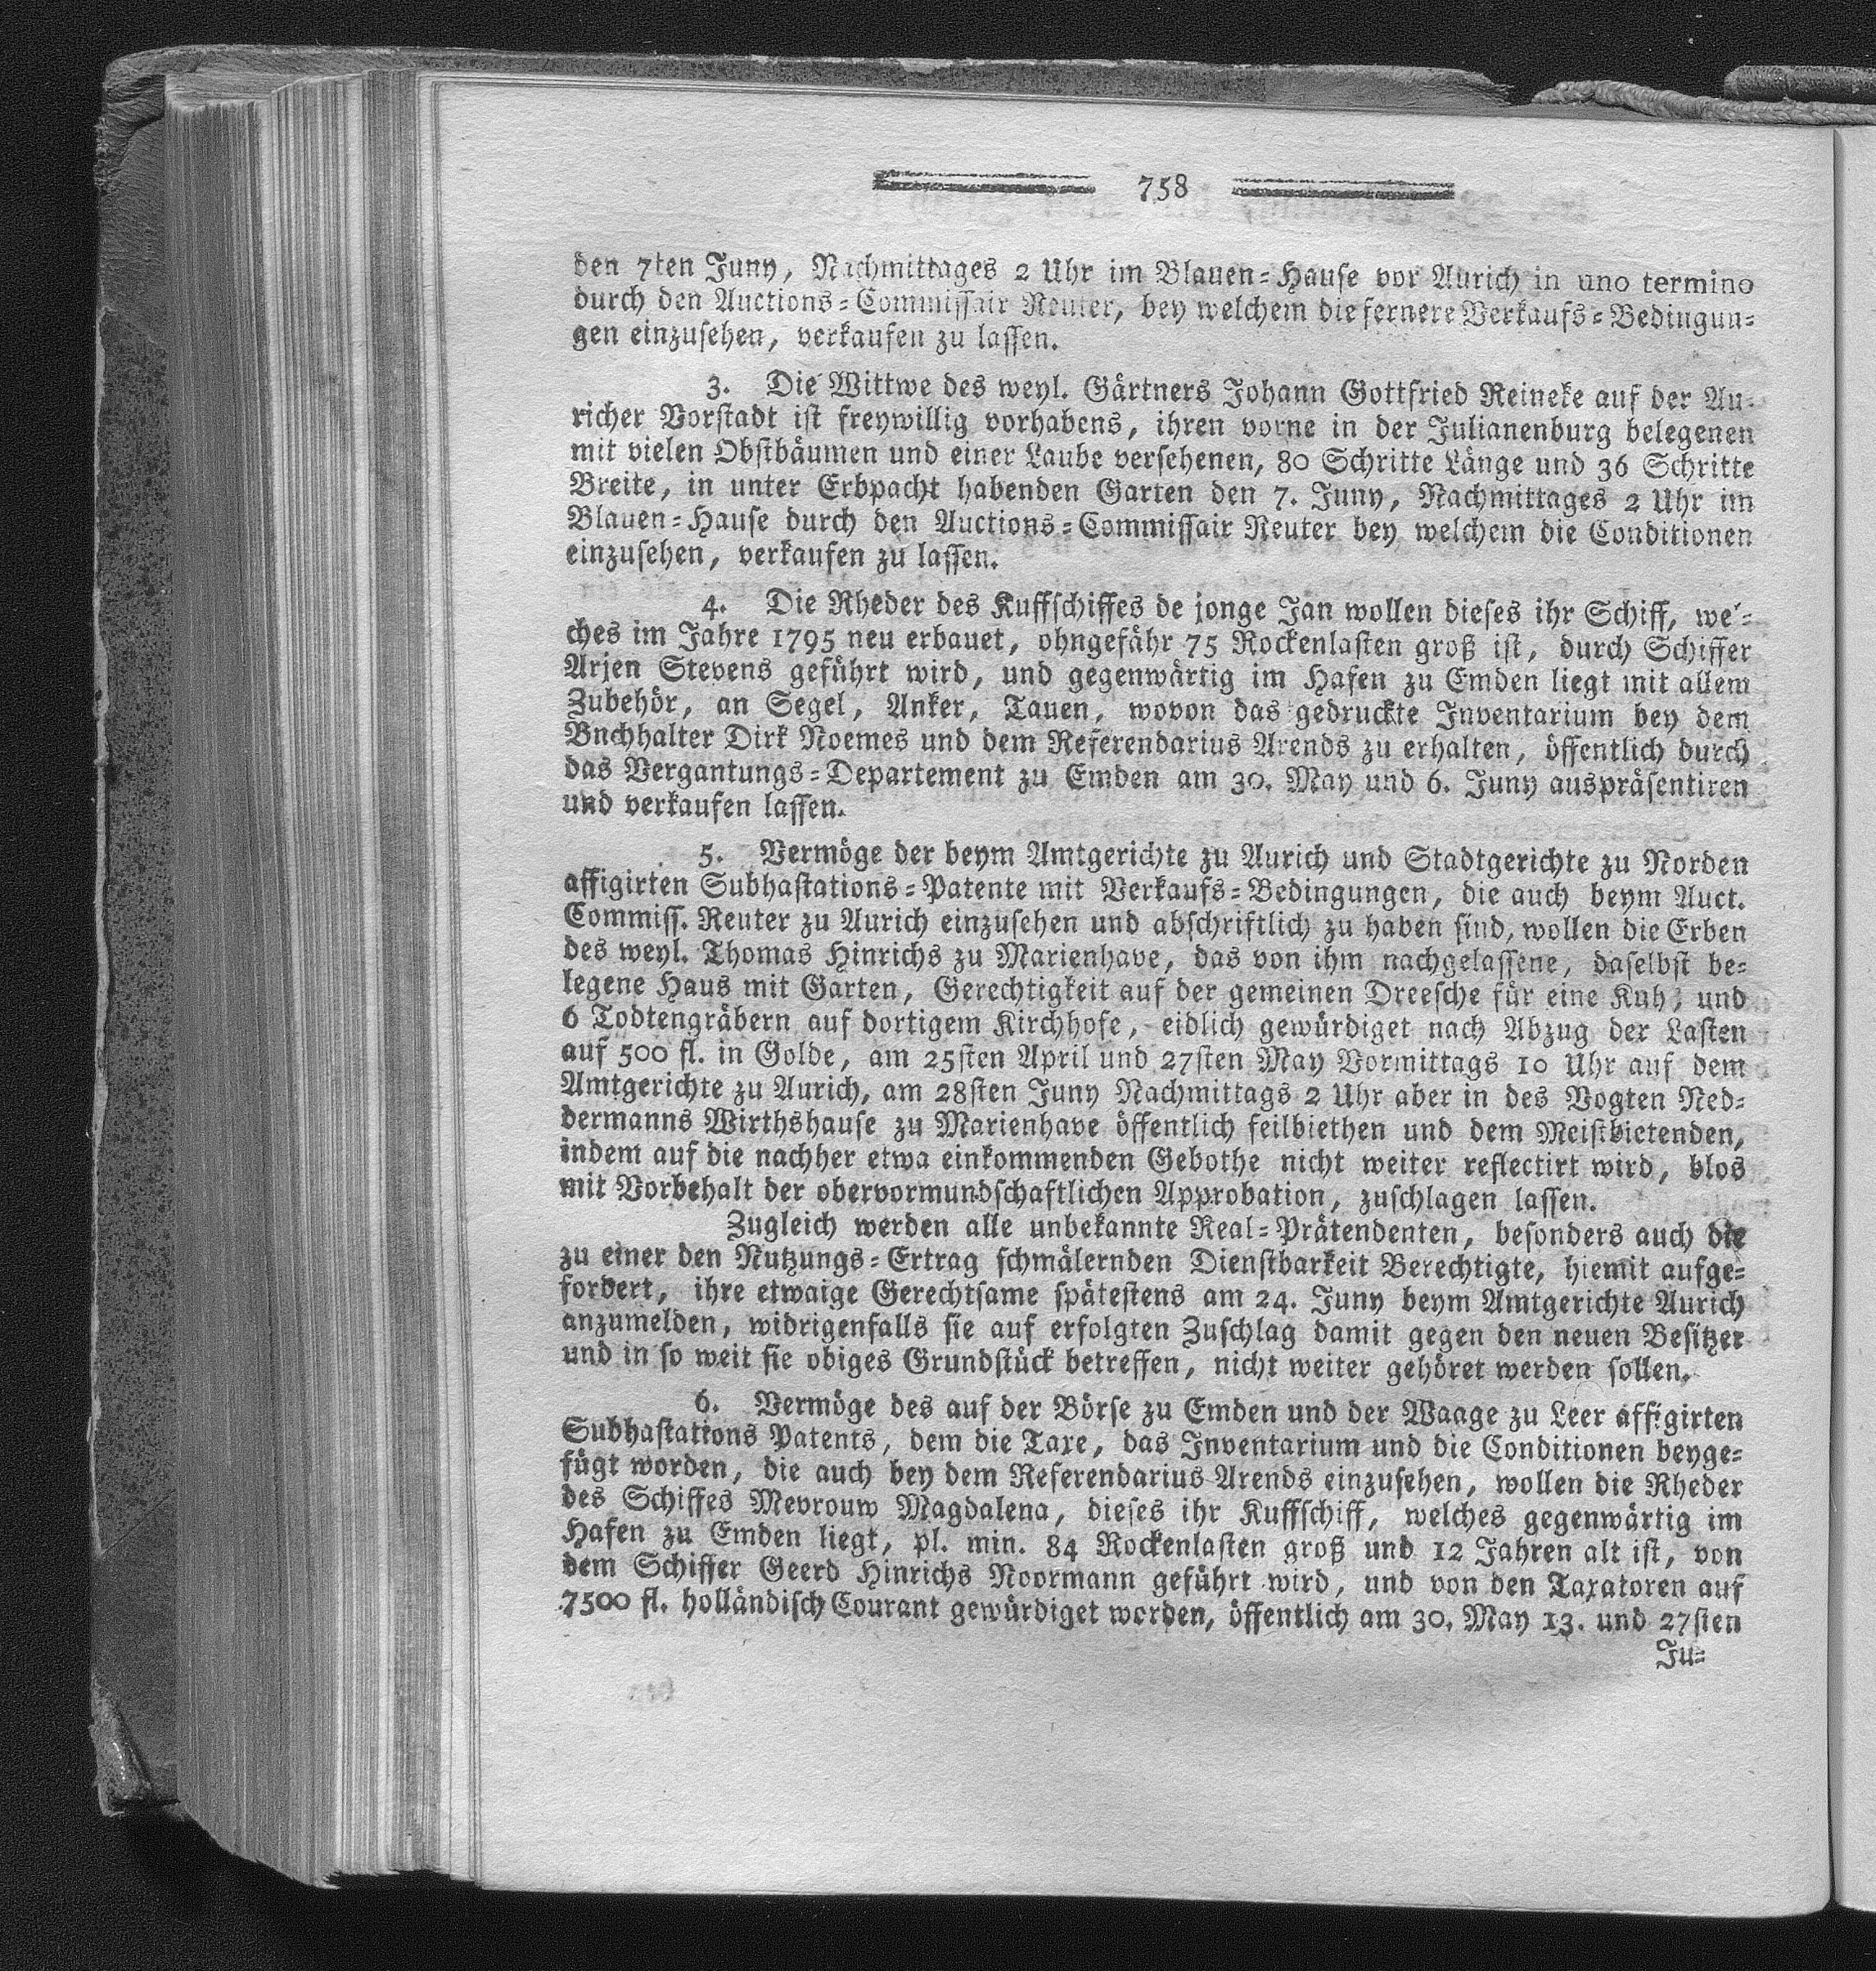 758
den 7ten Juny, Nachmittages 2 Uhr im Blauen-Hause vor Aurich in uno termino
durch den Auctions-Commissair Reuter, bey welchem die fernere Verkaufs-Bedingun-
gen einzusehen, verkaufen zu lassen.
3. Die Wittwe des weyl. Gärtners Johann Gottfried Reineke auf der Au-
richer Vorstadt ist freywillig vorhabens, ihren vorne in der Julianenburg belegenen
mit vielen Obstbäumen und einer Laube versehenen, 80 Schritte Länge und 36 Schritte
Breite, in unter Erbpacht habenden Garten den 7. Juny, Nachmittages 2 Uhr im
Blauen-Hause durch den Auctions-Commissair Reuter bey welchem die Conditionen
einzusehen, verkaufen zu lassen.
4. Die Rheder des Kuffschiffes de jonge Jan wollen dieses ihr Schiff, wel-
ches im Jahre 1795 neu erbauet, ohngefähr 75 Rockenlasten groß ist, durch Schiffer
Arjen Stevens geführt wird, und gegenwärtig im Hafen zu Emden liegt mit allem
Zubehör, an Segel, Anker, Tauen, wovon das gedruckte Inventarium bey dem
Bnchhalter Dirk Noemes und dem Referendarius Arends zu erhalten, öffentlich durch
das Vergantungs-Departement zu Emden am 30. May und 6. Juny auspräsentiren
und verkaufen lassen.
5. Vermöge der beym Amtgerichte zu Aurich und Stadtgerichte zu Norden
affigirten Subhastations-Patente mit Verkaufs-Bedingungen, die auch beym Auct.
Commiss. Reuter zu Aurich einzusehen und abschriftlich zu haben sind, wollen die Erben
des weyl. Thomas Hinrichs zu Marienhave, das von ihm nachgelassene, daselbst be-
legene Haus mit Garten, Gerechtigkeit auf der gemeinen Dreesche für eine Kuh, und
6 Todtengräbern auf dortigem Kirchhofe, eidlich gewürdiget nach Abzug der Lasten
auf 500 fl. in Golde, am 25sten April und 27sten May Vormittags 10 Uhr auf dem
Amtgerichte zu Aurich, am 28sten Juny Nachmittags 2 Uhr aber in des Vogten Ned-
dermanns Wirthshause zu Marienhave öffentlich feilbiethen und dem Meistbietenden,
indem auf die nachher etwa einkommenden Gebothe nicht weiter reflectirt wird, blos
mit Vorbehalt der obervormundschaftlichen Approbation, zuschlagen lassen.
Zugleich werden alle unbekannte Real-Prätendenten, besonders auch die
zu einer den Nutzungs-Ertrag schmälernden Dienstbarkeit Berechtigte, hiemit aufge-
fordert, ihre etwaige Gerechtsame spätestens am 24. Juny beym Amtgerichte Aurich
anzumelden, widrigenfalls sie auf erfolgten Zuschlag damit gegen den neuen Besitzer
und in so weit sie obiges Grundstück betreffen, nicht weiter gehöret werden sollen.
6. Vermöge des auf der Börse zu Emden und der Waage zu Leer affigirten
Subhastations Patents, dem die Taxe, das Inventarium und die Conditionen beyge-
fügt worden, die auch bey dem Referendarius Arends einzusehen, wollen die Rheder
des Schiffes Mevrouw Magdalena, dieses ihr Kuffschiff, welches gegenwärtig im
Hafen zu Emden liegt, pl. min. 84 Rockenlasten groß und 12 Jahren alt ist, von
dem Schiffer Geerd Hinrichs Noormann geführt wird, und von den Taxatoren auf
7500 fl. holländisch Courant gewürdiget worden, öffentlich am 30. May 13. und 27sten
Ju-